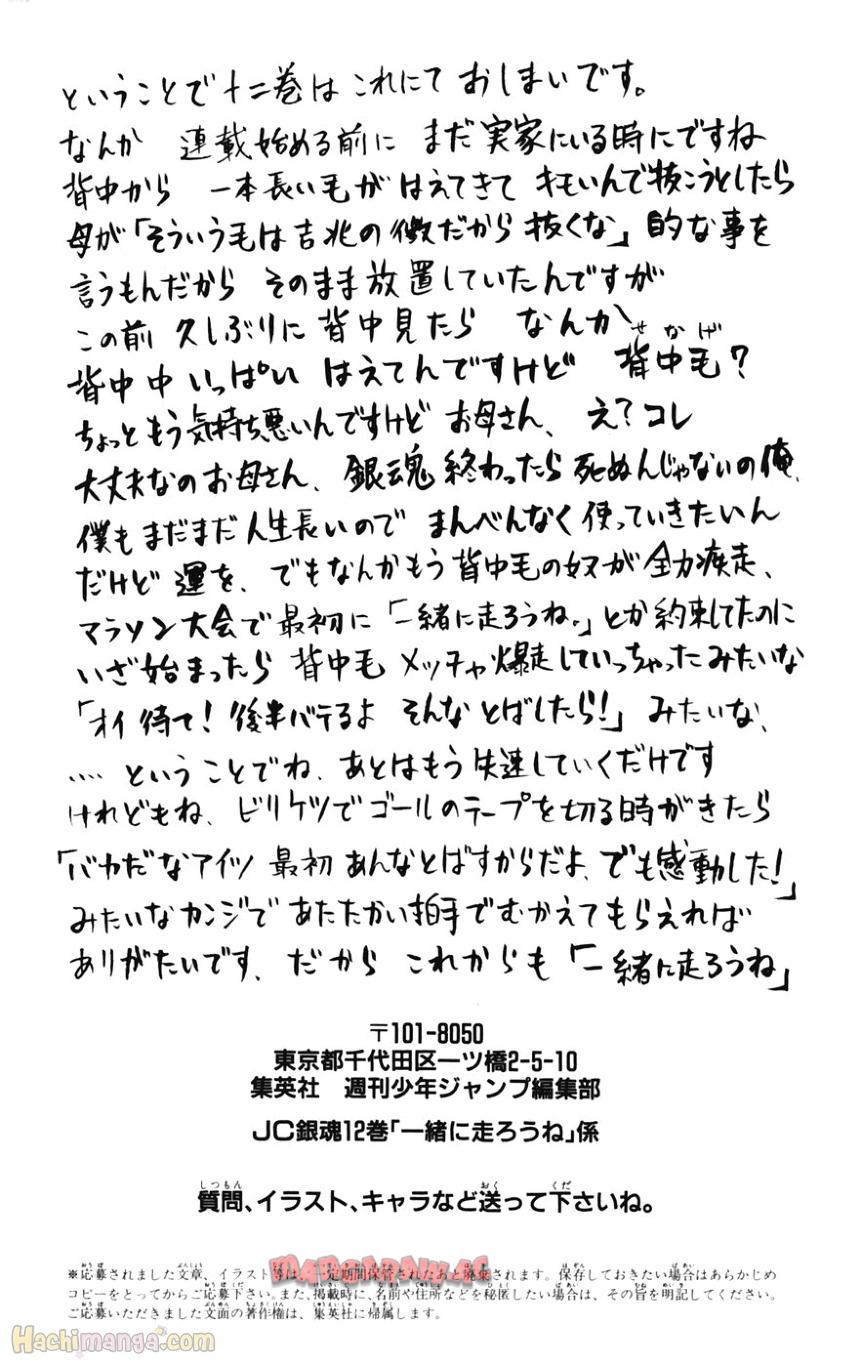 ということで十二巻はこれにておしまいです。
なんか 連載始める前に まだ実家にいる時にですね
背中から 一本長い毛が はえてきて キモいんで抜こうとしたら
母が「そういう毛は吉兆の徴だから 抜くな」的な事を
言うもんだから そのまま放置していたんですが
この前 久しぶりに 背中見たら なんか
せなかげ
背中中 いっぱい はえてんですけど 背中毛?
ちょっともう気持ち悪いんですけど お母さん、え?コレ
大丈夫なのお母さん、銀魂終わったら死ぬんじゃないの俺、
僕もまだまだ人生長いので まんべんなく使っていきたいん
だけど 運を、でもなんかもう背中毛の奴が全力疾走、
マラソン大会で最初に「一緒に走ろうね。」とか約束してたのに
いざ始まったら 背中毛 メッチャ爆走していっちゃったみたいな
「オイ待て!後半バテるよ そんなとばしたら!」みたいな、
‥‥ということでね、あとはもう失速していくだけです
けれどもね、ビリケツでゴールのテープを切る時がきたら
「バカだなアイツ 最初あんなとばすからだよ、でも感動した!」
みたいなカンジで あたたかい拍手でむかえてもらえれば
ありがたいです、だから これからも「一緒に走ろうね」
〒101-8050
東京都千代田区一ツ橋2-5-10
集英社 週刊少年ジャンプ編集部
JC銀魂12巻「一緒に走ろうね」係
しつもん おく くだ
質問、イラスト、キャラなど送って下さいね。
※応募されました文章、イラスト等は、一定期間保管されたあと廃棄されます。保存しておきたい場合はあらかじめ
コピーをとってからご応募下さい。また、掲載時に、名前や住所などを秘匿したい場合は、その旨を明記してください。
ご応募いただきました文面の著作権は、集英社に帰属します。
Hachimanga.com